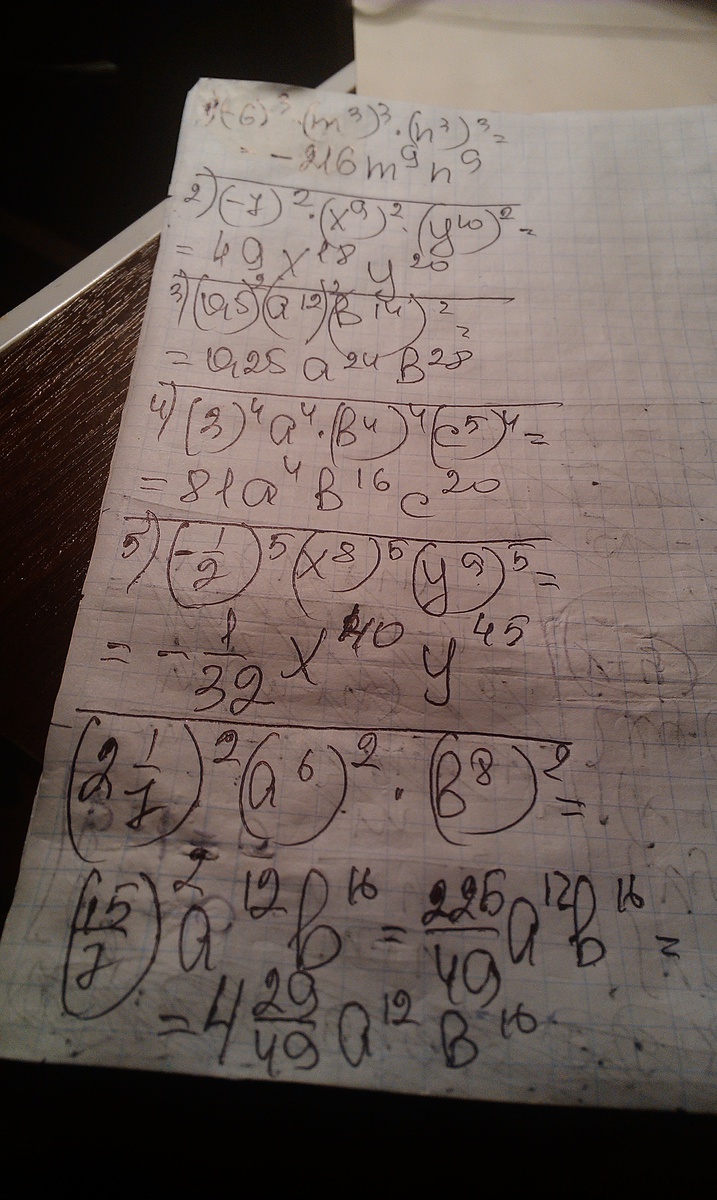 1) (-6)³·(m³)³·(n³)³=
= -216m⁹n⁹
2) (-7)²·(x⁹)²·(y¹⁰)²=
= 49x¹⁸y²⁰
3) (0,5)²(a¹²)²(b¹⁴)²=
= 0,25a²⁴b²⁸
4) (3)⁴a⁴·(b⁴)⁴(c⁵)⁴=
= 81a⁴b¹⁶c²⁰
5) (-1/2)⁵(x⁸)⁵(y⁹)⁵=
= -1/32 x⁴⁰y⁴⁵
(2 1/7)²(a⁶)²·(b⁸)²=
(15/7)²a¹²b¹⁶ = 225/49 a¹²b¹⁶ =
= 4 29/49 a¹²b¹⁶